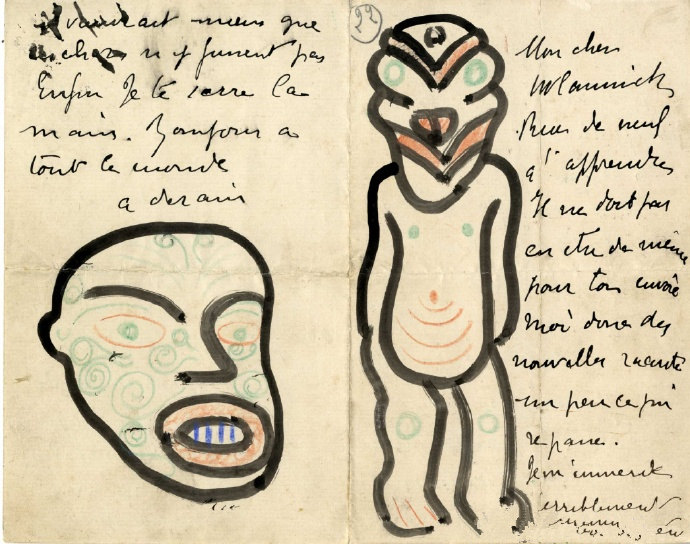 mieux que
n'y fussent pas
Enfin Je te serre la
main. Bonjour a
tout le monde
a derain
22
Mon cher
Vlaminck
Rien de neuf
a t'apprendre
Il ne doit pas
en etre de même
pour toi envoie
moi donc des
nouvelles raconte
un peu ce qui
se passe.
Je m'ennuie